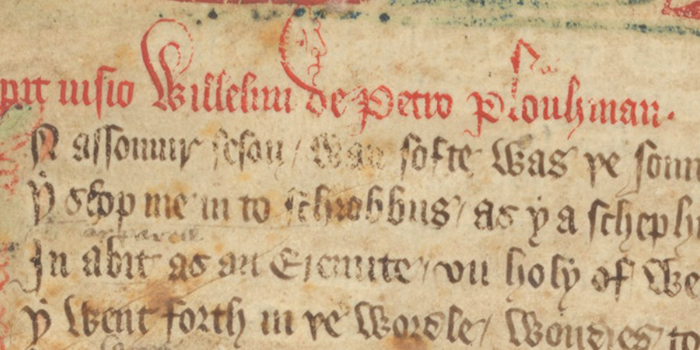 pit uisio Willelmi de Petro Plouhman.
N a ssomur seson / wan softe was þe sonn
Y scop me in to schrobbus / as y a scheph
In abit as an Ermite / vn holy of We
Y went forth in þe wordle / Wondres to